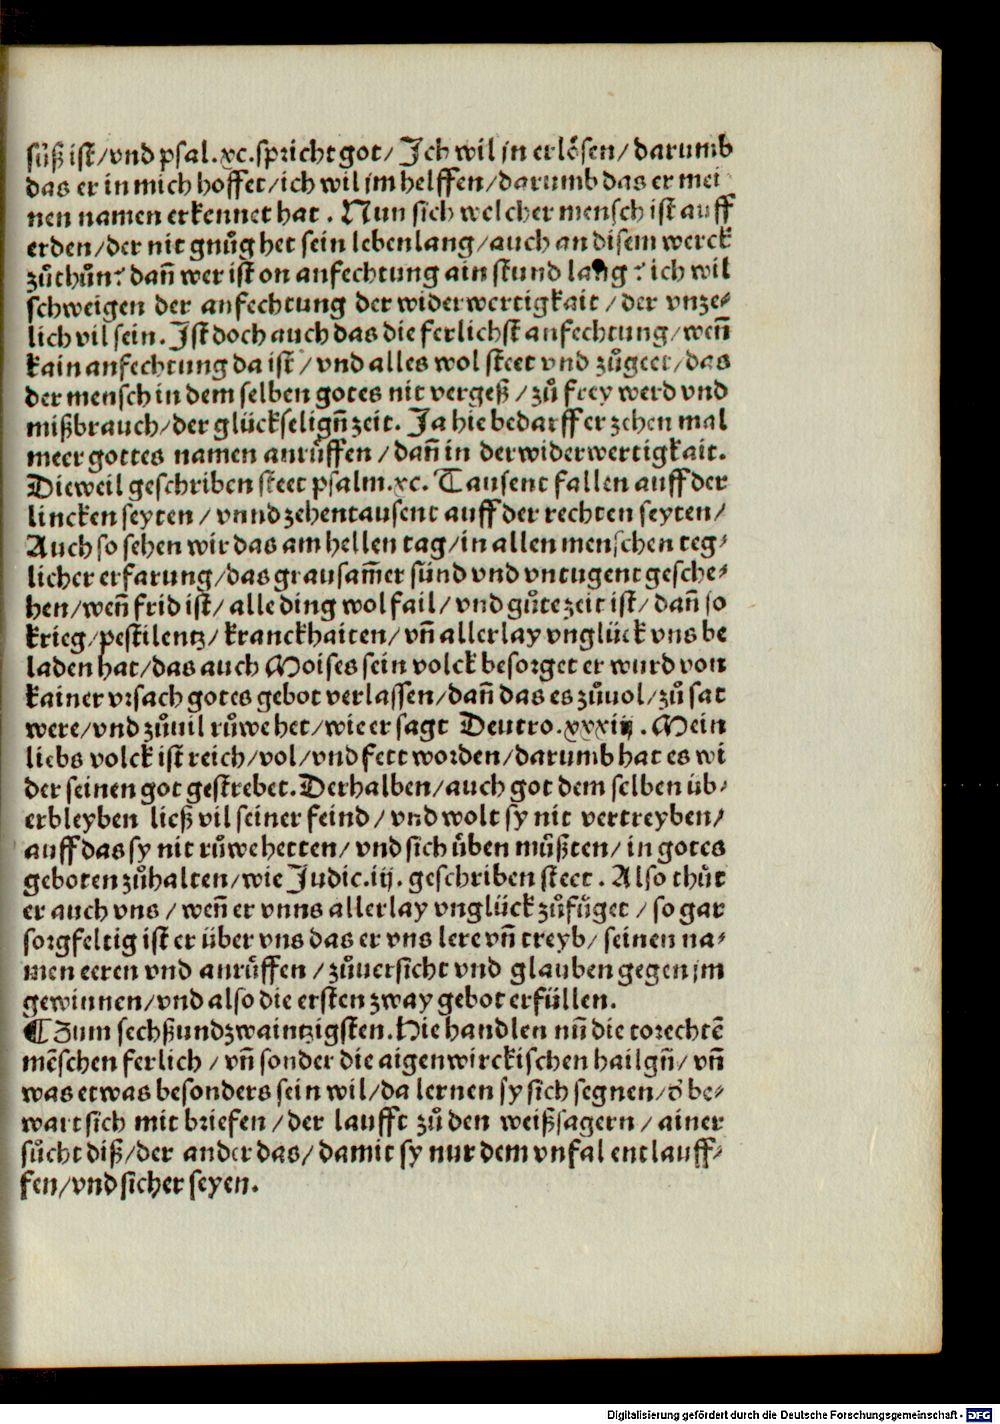 süß ist/vnd psal.xc.spricht got/ Ich wil jn erlősen/ darumb
das er in mich hoffet/ich wil jm helffen/darumb das er mei
nen namen erkennet hat. Nun sich welcher mensch ist auff
erden/der nit gnůg het sein lebenlang/auch an disem werck
zůthůn? dañ wer ist on anfechtung ain stund lang? ich wil
schweigen der anfechtung der widerwertigkait/der vnze⸗
lich vil sein. Ist doch auch das die ferlichst anfechtung/weñ
kain anfechtung da ist/vnd alles wol steet vnd zůgeet/das
der mensch in dem selben gotes nit vergeß/zů frey werd vnd
mißbrauch/der glückseligñ zeit. Ja hie bedarff er zehen mal
meer gottes namen anrůffen/dañ in der widerwertigkait.
Dieweil geschriben steet psalm.xc. Tausent fallen auff der
lincken seyten/vnnd zehentausent auff der rechten seyten/
Auch so sehen wir das am hellen tag/in allen menschen teg⸗
licher erfarung/das grausam̄er sünd vnd vntugent gesche⸗
hen/weñ frid ist/alle ding wolfail/vnd gůte zeit ist/dañ so
krieg/pestilentz/kranckhaiten/vñ allerlay vnglück vns be
laden hat/das auch Moises sein volck besorget er wurd von
kainer vrsach gotes gebot verlassen/dañ das es zůuol/zů sat
were/vnd zůuil růwe het/wie er sagt Deutro.xxxiij. Mein
liebs volck ist reich/vol/vnd fett worden/darumb hat es wi
der seinen got gestrebet. Derhalben/auch got dem selben üb⸗
erbleyben ließ vil seiner feind/vnd wolt sy nit vertreyben/
auff das sy nit růwe hetten/vnd sich üben můßten/in gotes
geboten zůhalten/wie Judic.iij. geschriben steet. Also thůt
er auch vns/weñ er vnns allerlay vnglück zůfüget/so gar
sorgfeltig ist er über vns das er vns lere vñ treyb/seinen na⸗
men eeren vnd anrůffen/zůuersicht vnd glauben gegen jm
gewinnen/vnd also die ersten zway gebot erfüllen.
¶ Zum sechßundzwaintzigsten. Hie handlen nũ die torechtẽ
mẽschen ferlich/vñ sonder die aigenwirckischen hailgñ/vñ
was etwas besonders sein wil/da lernen sy sich segnen/d̕ be⸗
wart sich mit briefen/der laufft zů den weißsagern/ainer
sůcht diß/der ander das/damit sy nur dem vnfal entlauff⸗
fen/vnd sicher seyen.
Digitalisierung gefördert durch die Deutsche Forschungsgemeinschaft - DFG